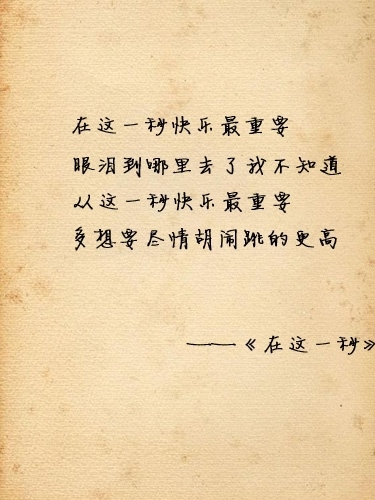 在这一秒快乐最重要
眼泪到哪里去了我不知道
从这一秒快乐最重要
多想要尽情胡闹跳的更高
——《在这一秒》